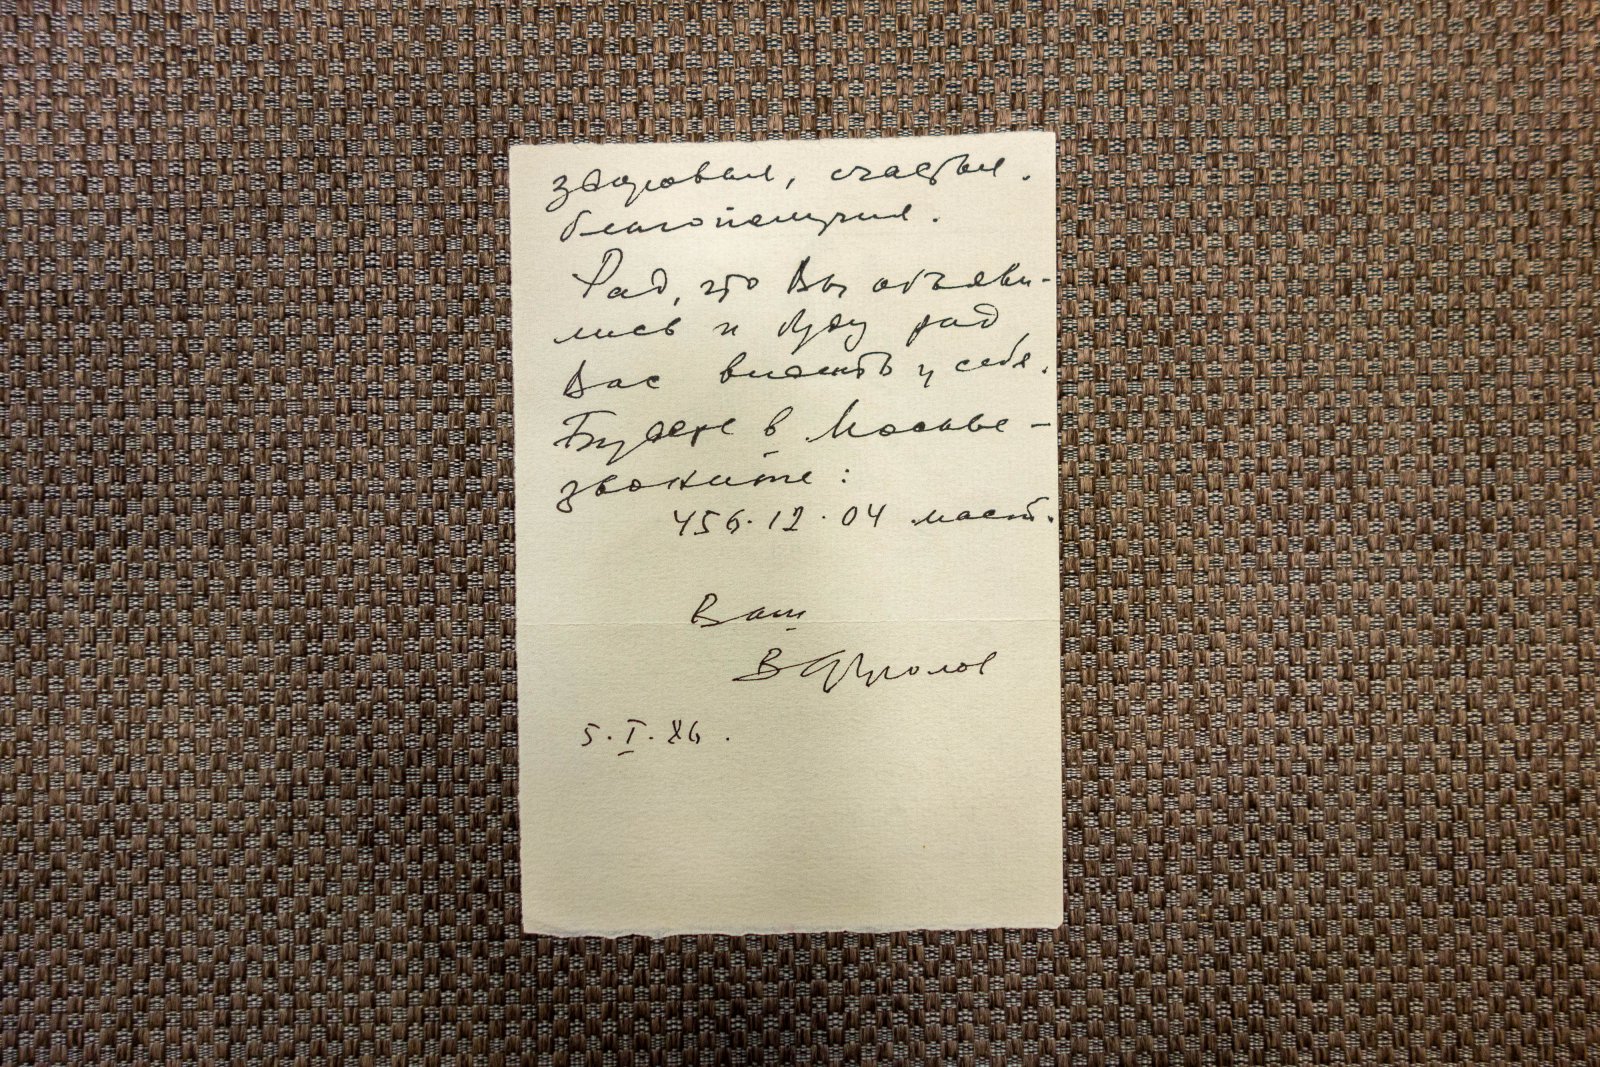 здоровья, счастья.
благополучия.
Рад, что Вы объяви-
лись и буду рад
Вас видеть у себя.
Будете в Москве –
звоните:
456·12·04 маст.
Ваш
В Фролов
5·I·86.